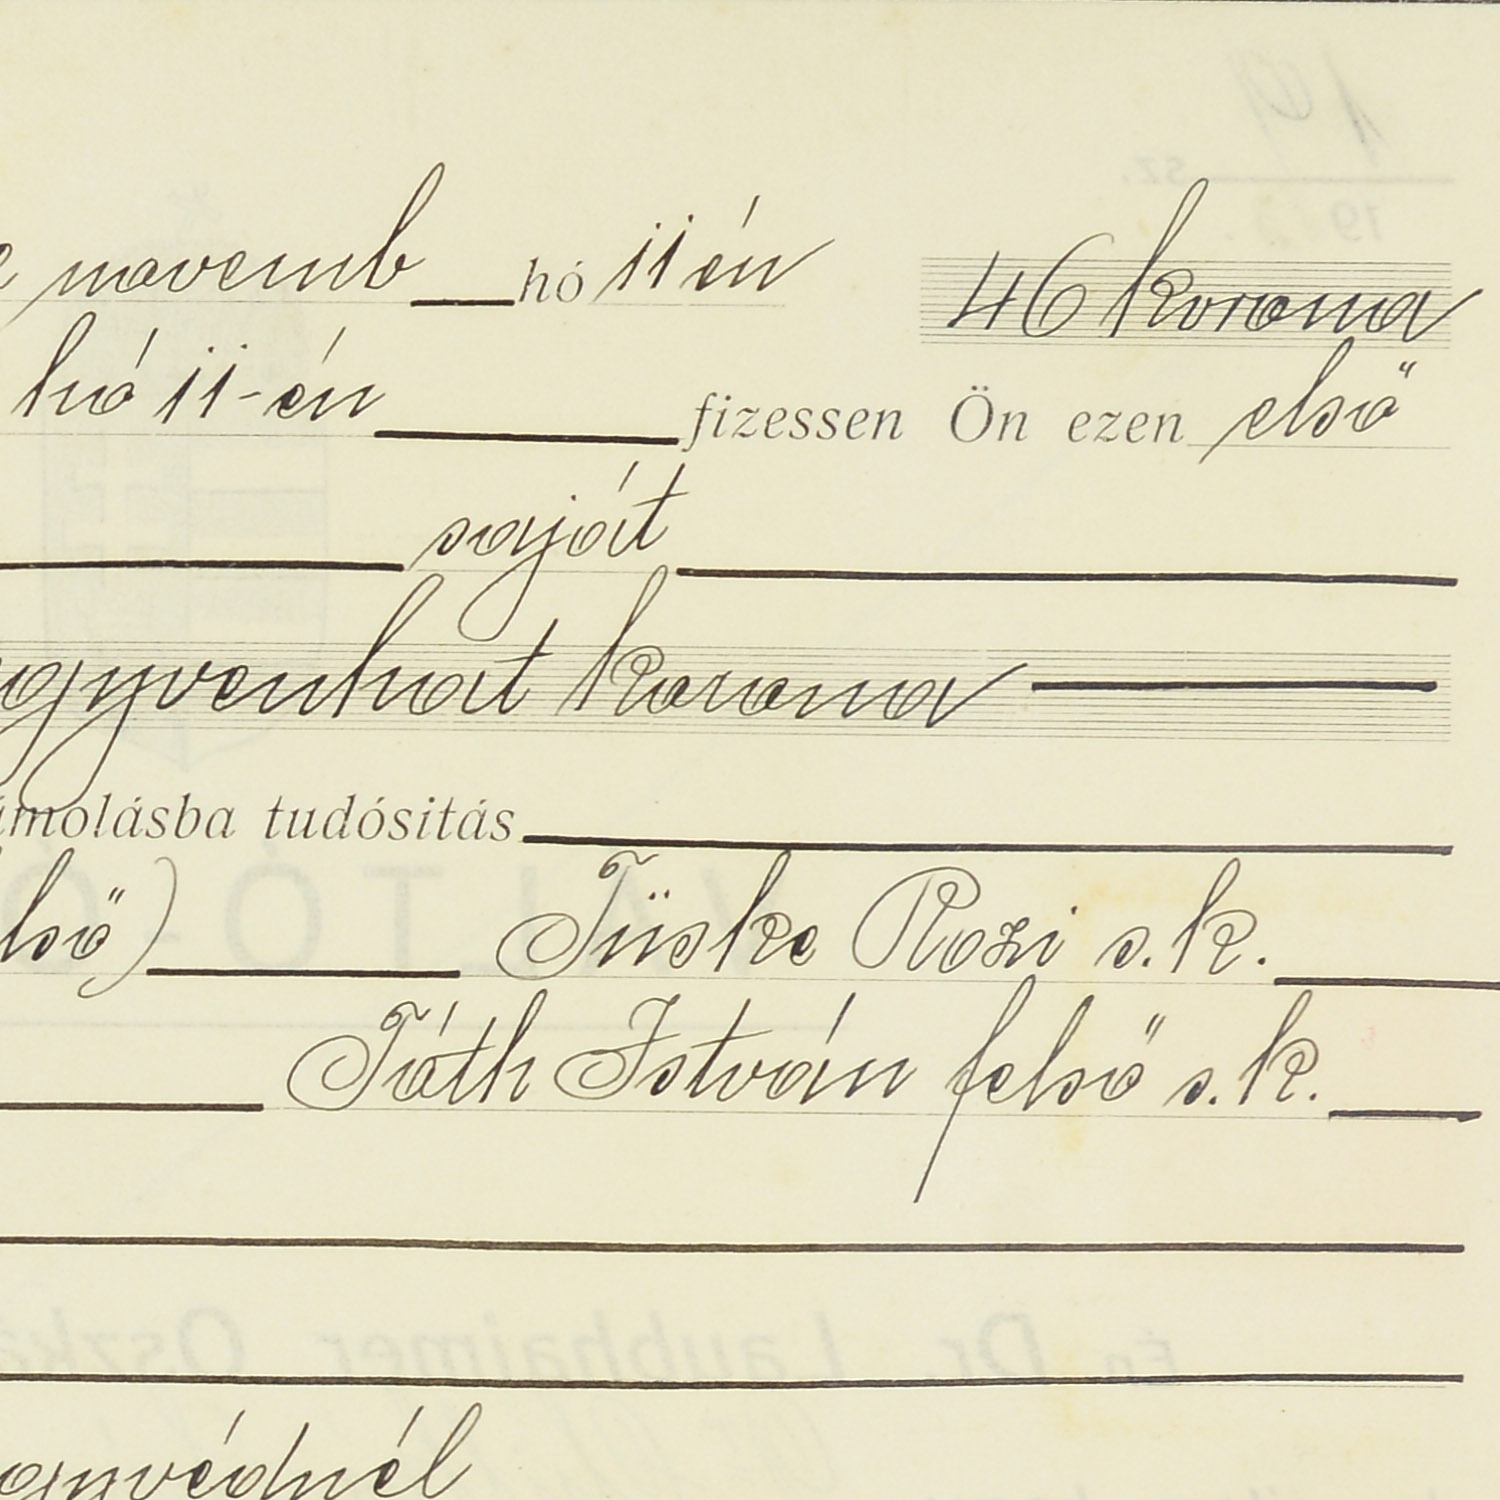 novemb hó 11 én 46 korona
hó 11-én fizessen Ön ezen első
saját
gyvenhat korona
ámolásba tudósitás
lső) Tüske Rozi s.k.
Tóth István felső s.k.
gyvédnél